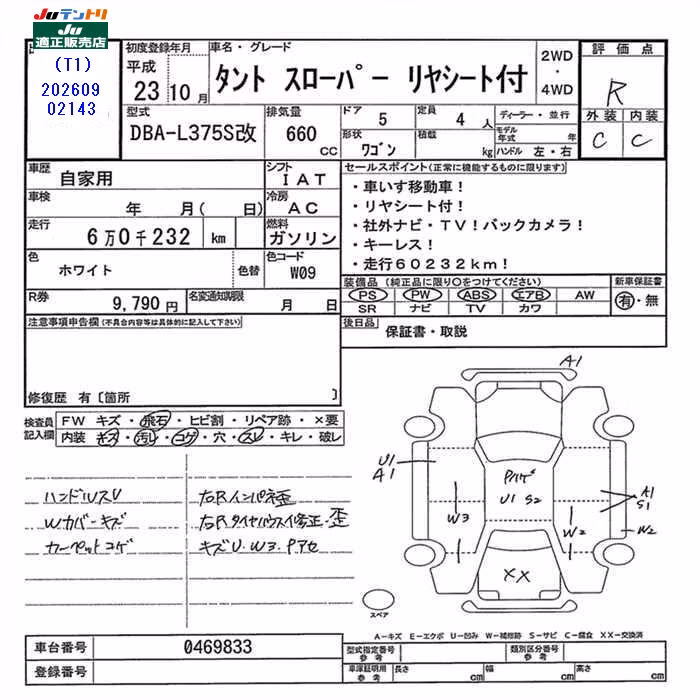 JUテントリ
JU
適正販売店
(T1)
202609
02143
初度登録年月
平成
23 10 月
車名・グレード
タント スローパー リヤシート付
2WD
・
4WD
評価点
R
外装 内装
C C
型式
DBA-L375S改
排気量
660
CC
ドア 5
定員 4 人
ディーラー・並行
形状 ワゴン
積載 kg
モデル年式 年
ハンドル 左・右
車歴 自家用
シフト IAT
車検 年 月( 日)
冷房 AC
走行 6万0千232 km
燃料 ガソリン
色 ホワイト
色替
色コード W09
R券 9,790 円
名変通知期限 月 日
セールスポイント(正常に機能するものに限ります)
・車いす移動車!
・リヤシート付!
・社外ナビ・TV!バックカメラ!
・キーレス!
・走行60232km!
装備品(純正品に限り○をつけてください)
新車保証書
PS PW ABS エアB AW
有・無
SR ナビ TV カワ
後日品 保証書・取説
注意事項申告欄(不具合内容等は具体的に記入して下さい)
修復歴 有〔箇所 〕
検査員記入欄
FW キズ・飛石・ヒビ割・リペア跡・×要
内装 キズ・汚レ・コゲ・穴・スレ・キレ・破レ
ハンドルスレ
Wカバーキズ
カーペットコゲ
右Rインパネ歪
右Rタイヤハウス修正・歪
キズU.W3.Pアセ
A1
U1
A1
W3
U1 S2
W2
A1
S1
W2
XX
スペア
A-キズ E-エクボ U-凹み W-補修跡 S-サビ C-腐食 XX-交換済
車台番号 0469833
登録番号
型式指定番号
参考
類別区分番号
参考
車庫証明用
参考
長さ cm
幅 cm
高さ cm